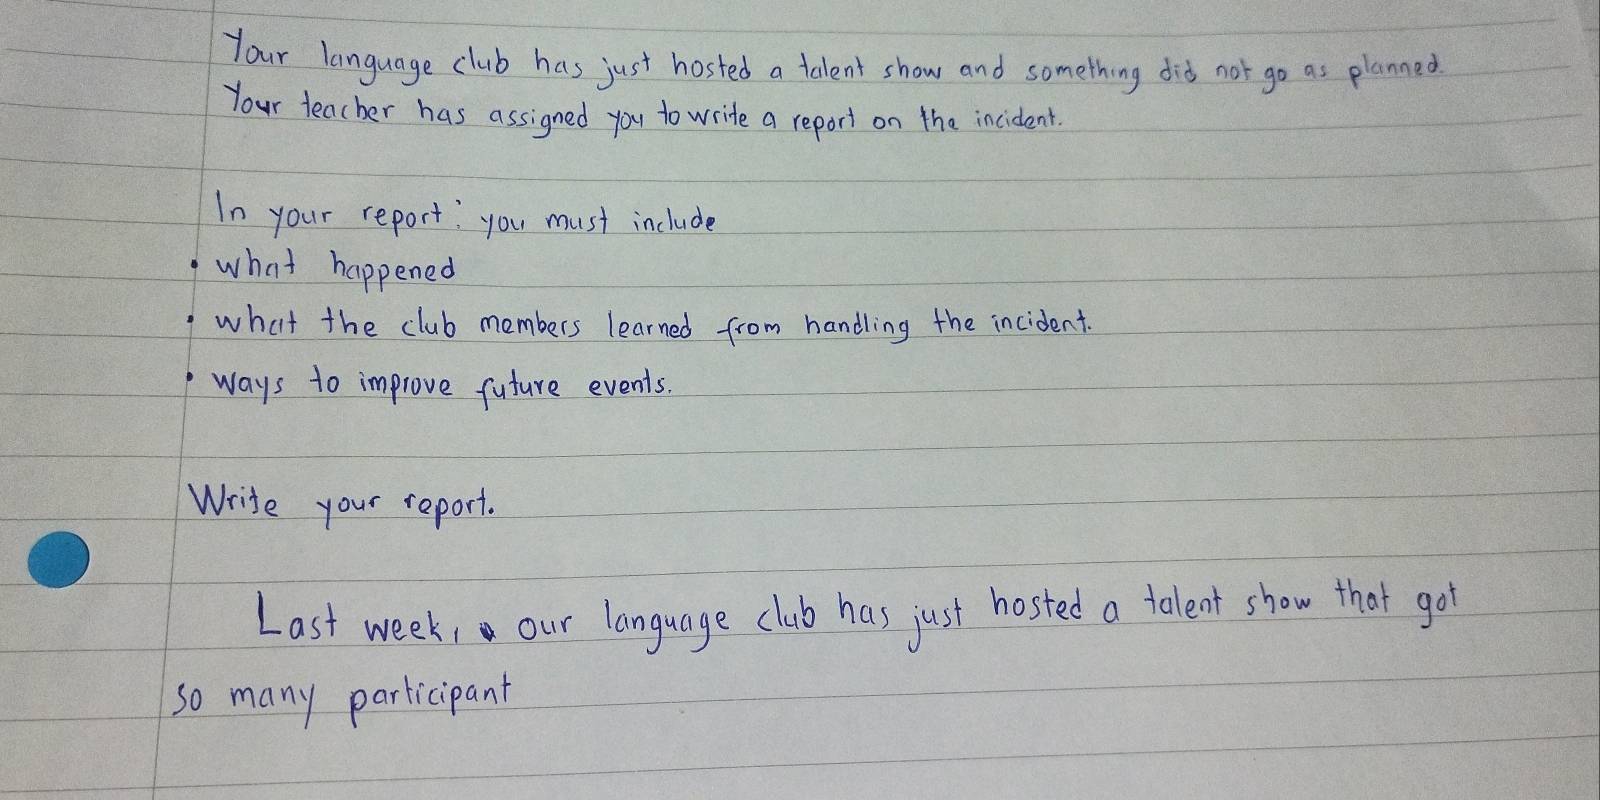 Your language club has just hosted a talent show and something did not go as planned.
Your teacher has assigned you to write a report on the incident.
In your report: you must include
• what happened
• what the club members learned from handling the incident.
• ways to improve future events.
Write your report.
Last week, our language club has just hosted a talent show that got
so many participant